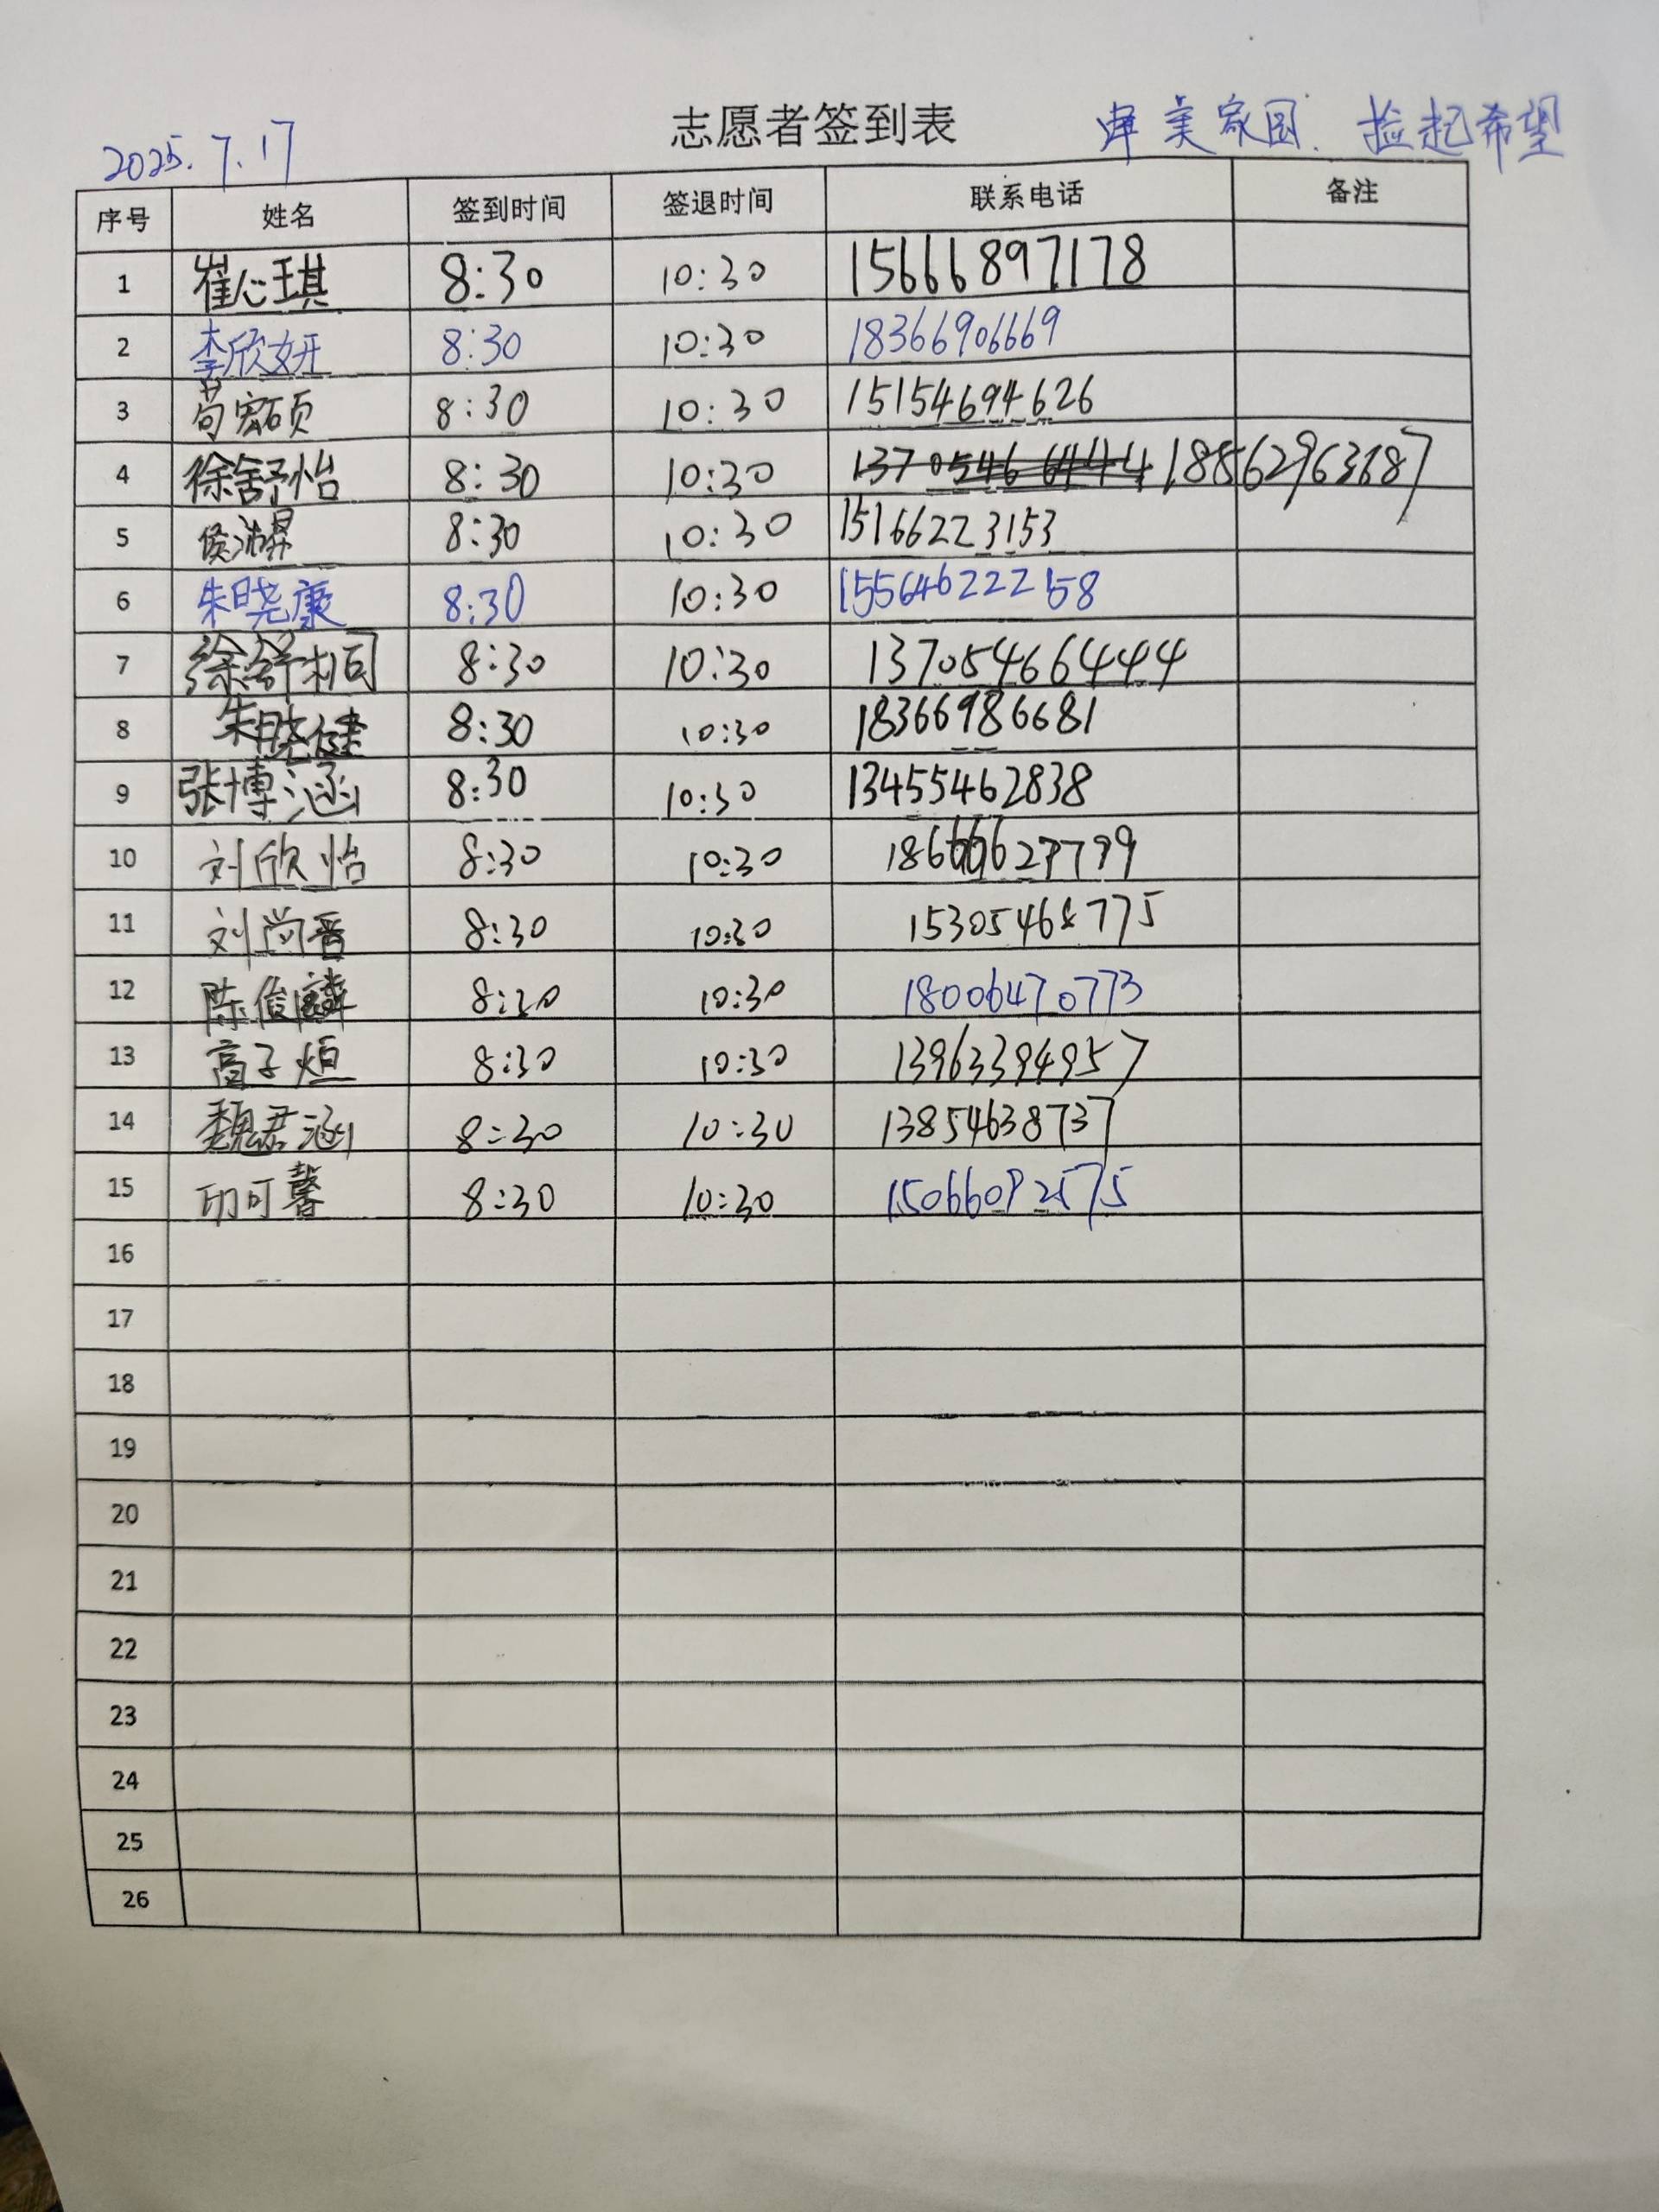 志愿者签到表 美家园 捡起希望
2025.7.17
序号 姓名 签到时间 签退时间 联系电话 备注
1 崔心琪 8:30 10:30 15666897178
2 李欣妍 8:30 10:30 18366906669
3 苟宸硕 8:30 10:30 15154694626
4 徐舒怡 8:30 10:30 13705466444 18562963687
5 侯沛昇 8:30 10:30 15166223153
6 朱晓康 8:30 10:30 15564622258
7 徐舒桐 8:30 10:30 13705466444
8 朱晓健 8:30 10:30 18366986681
9 张博涵 8:30 10:30 13455462838
10 刘欣怡 8:30 10:30
11 刘尚晋 8:30 10:30
12 陈俊麟 8:30 10:30 18006470773
13 高子烜 8:30 10:30 13963394957
14 魏君涵 8:30 10:30 13854638737
15 印可馨 8:30 10:30 15066092575
16
17
18
19
20
21
22
23
24
25
26